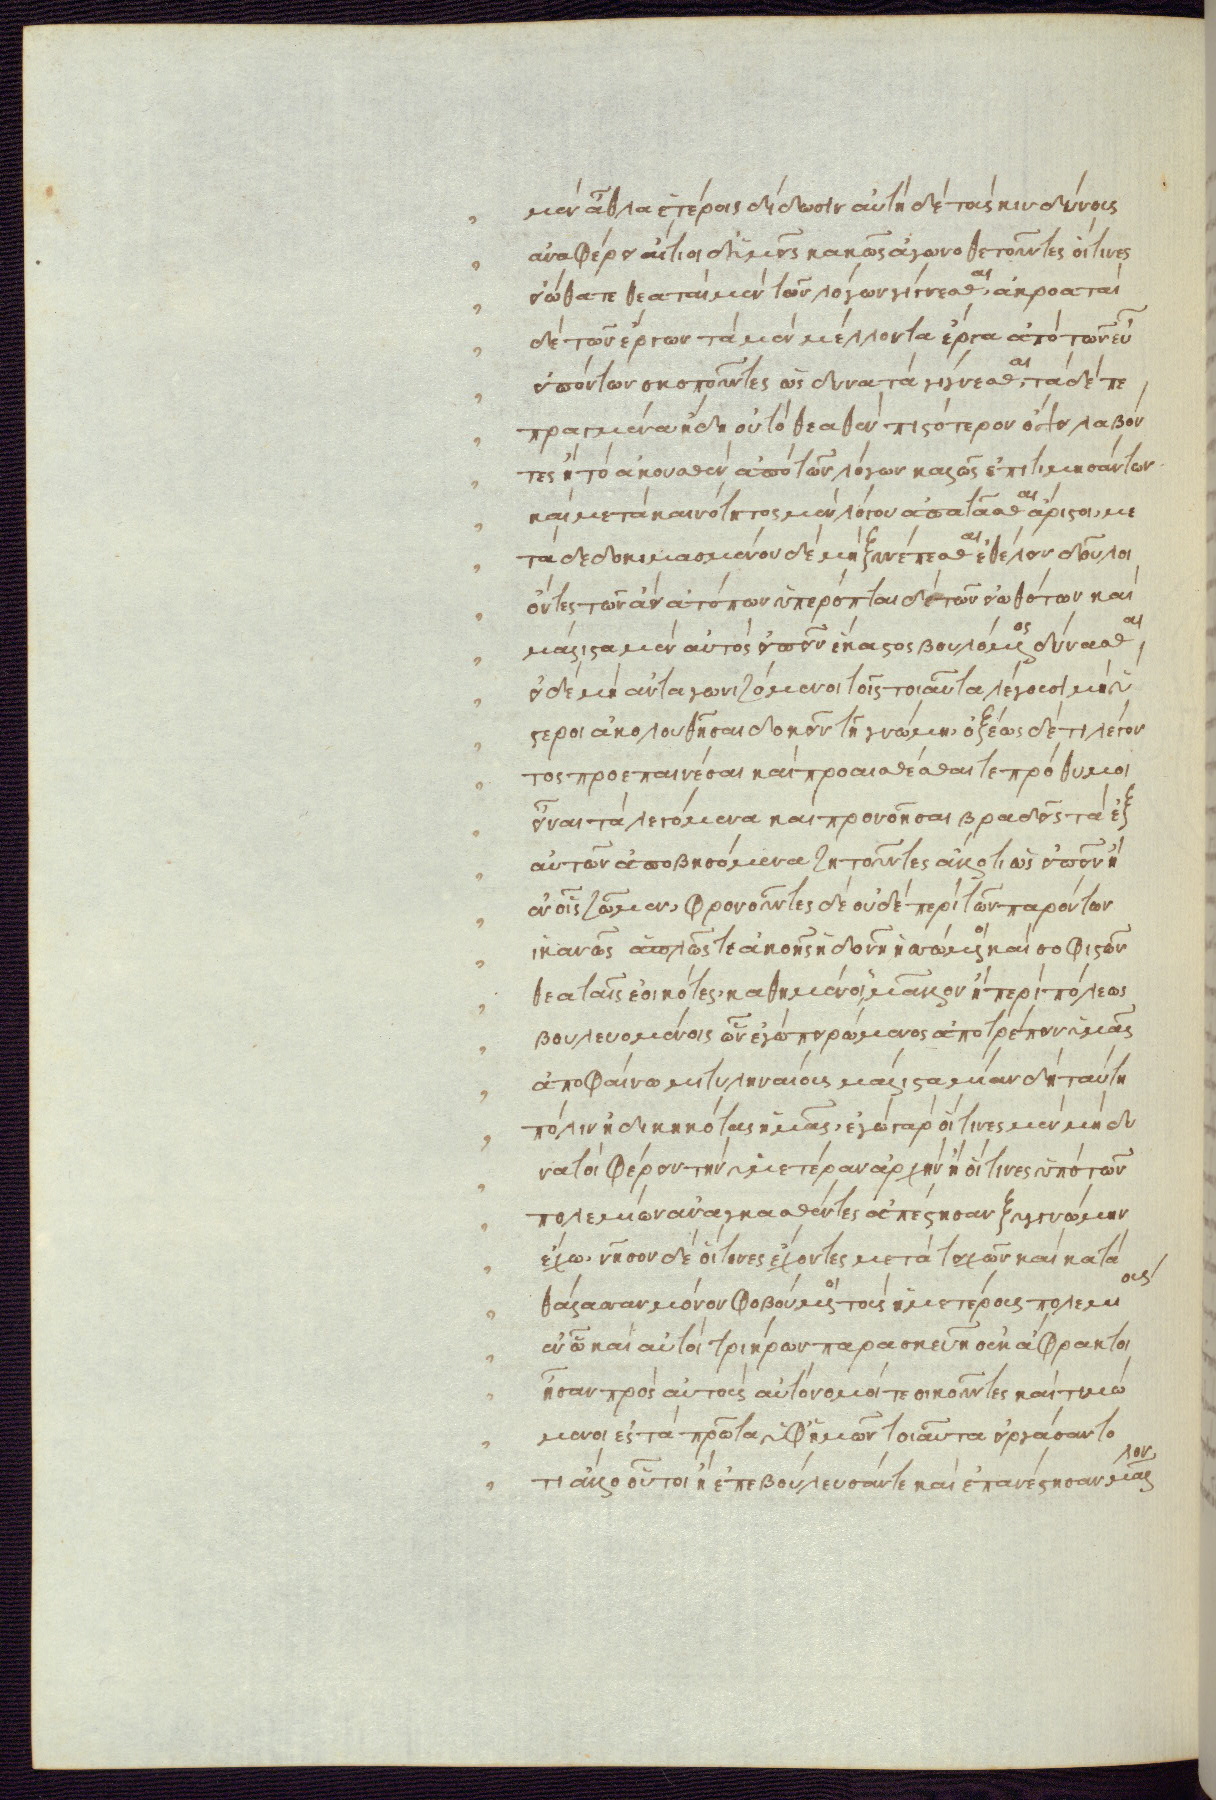 μὲν ἆθλα ἑτέροις δίδωσιν αὐτὴ δὲ τοὺς κινδύνους
ἀναφέρει αἴτιοι δ' ὑμεῖς κακῶς ἀγωνοθετοῦντες οἵτινες
εἰώθατε θεαταὶ μὲν τῶν λόγων γίγνεσθαι, ἀκροαταὶ
δὲ τῶν ἔργων τὰ μὲν μέλλοντα ἔργα ἀπὸ τῶν εὖ
εἰπόντων σκοποῦντες ὡς δυνατὰ γίγνεσθαι, τὰ δὲ πε
πραγμένα ἤδη οὐ τὸ δρασθὲν πιστότερον ὄψει λαβόν
τες ἢ τὸ ἀκουσθὲν ἀπὸ τῶν λόγων καλῶς ἐπιτιμησάντων
καὶ μετὰ καινότητος μὲν λόγου ἀπατᾶσθαι ἄριστοι, με
τὰ δεδοκιμασμένου δὲ μὴ ξυνέπεσθαι ἐθέλειν δοῦλοι
ὄντες τῶν ἀεὶ ἀτόπων ὑπερόπται δὲ τῶν εἰωθότων καὶ
μάλιστα μὲν αὐτὸς εἰπεῖν ἕκαστος βουλόμενος δύνασθαι
εἰ δὲ μὴ ἀνταγωνιζόμενοι τοῖς τοιαῦτα λέγουσι μὴ ὕ
στεροι ἀκολουθῆσαι δοκεῖν τῇ γνώμῃ, ὀξέως δέ τι λέγον
τος προεπαινέσαι καὶ προαισθέσθαι τε πρόθυμοι
εἶναι τὰ λεγόμενα καὶ προνοῆσαι βραδεῖς τὰ ἐξ
αὐτῶν ἀποβησόμενα ζητοῦντες ἄλλο τι ὡς εἰπεῖν ἢ
ἐν οἷς ζῶμεν, φρονοῦντες δὲ οὐδὲ περὶ τῶν παρόντων
ἱκανῶς ἁπλῶς τε ἀκοῆς ἡδονῇ ἡσσώμενοι καὶ σοφιστῶν
θεαταῖς ἐοικότες, καθημένοις μᾶλλον ἢ περὶ πόλεως
βουλευομένοις ὧν ἐγὼ πειρώμενος ἀποτρέπειν ὑμᾶς
ἀποφαίνω μιτυληναίους μάλιστα μίαν δὴ ταύτη
πόλιν ἠδικηκότας ἡμᾶς, ἐγὼ γὰρ οἵτινες μὲν μὴ δυ
νατοὶ φέρειν τὴν ὑμετέραν ἀρχὴν ἢ οἵτινες ὑπὸ τῶν
πολεμίων ἀναγκασθέντες ἀπέστησαν ξυγγνώμην
ἔχω, νῆσον δὲ οἵτινες ἔχοντες μετὰ τειχῶν καὶ κατὰ
θάλασσαν μόνον φοβούμενοι τοὺς ἡμετέρους πολεμίους
ἐν ᾧ καὶ αὐτοὶ τριήρων παρασκευῇ οὐκ ἄφρακτοι
ἦσαν πρὸς αὐτοὺς αὐτόνομοί τε οἰκοῦντες καὶ τιμώ
μενοι ἐς τὰ πρῶτα ὑφ' ἡμῶν τοιαῦτα εἰργάσαντο
τί ἄλλο οὗτοι ἢ ἐπεβούλευσάν τε καὶ ἐπανέστησαν μᾶλλον